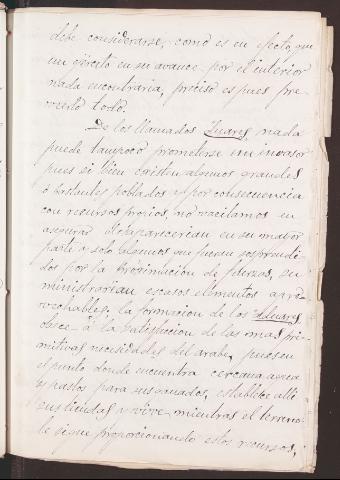 debe considerarse, como es en efecto, que
un ejército en su avance por el interior
nada encontraria, preciso es pues pre-
veerlo todo.
De los llamados Duares nada
puede tampoco prometerse un invasor
pues si bien existen algunos grandes
ó bastantes poblados y por consecuencia
con recursos propios, no vacilamos en
asegurar desaparecerian en su mayor
parte y solo algunos que fuesen sosprendi-
dos por la proximidad de fuerzas, su
ministrarian escasos elementos apro
vechables; la formacion de los Aduares
obece á la satisfaccion de las mas pri-
mitivas necesidades del arabe, pues en
el punto donde encuentra cercana agua
y pastos para sus ganados, establece alli
sus tiendas y vive mientras el terreno
le sigue proporcionando estos recursos,